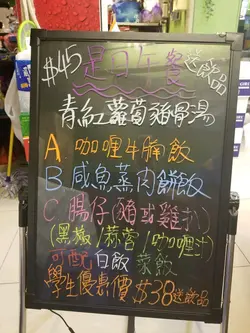 $45 是日午餐 送飲品
青紅蘿蔔豬骨湯
A. 咖喱牛腩飯
B 咸魚蒸肉餅飯
C 腸仔(豬或雞扒)
(黑椒/蒜蓉/咖喱汁)
可配白飯 菜飯
學生優惠價 $38送飲品